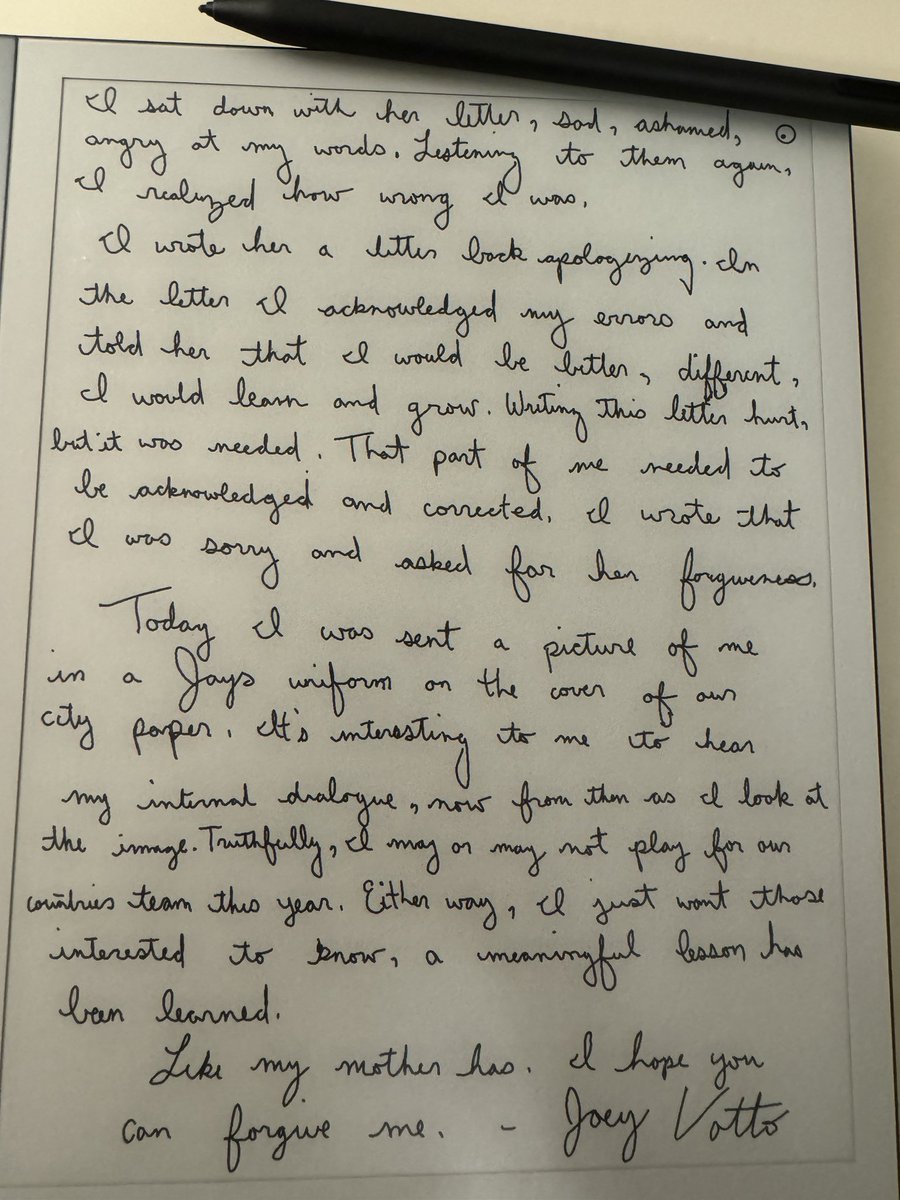 I sat down with her letter, sad, ashamed,
angry at my words. Listening to them again,
I realized how wrong I was.
I wrote her a letter back apologizing. In
the letter I acknowledged my errors and
told her that I would be better, different,
I would learn and grow. Writing this letter hurt,
but it was needed. That part of me needed to
be acknowledged and corrected. I wrote that
I was sorry and asked for her forgiveness.
Today I was sent a picture of me
in a Jays uniform on the cover of our
city paper. It's interesting to me to hear
my internal dialogue, now from then as I look at
the image. Truthfully, I may or may not play for our
countries team this year. Either way, I just want those
interested to know, a meaningful lesson has
been learned.
Like my mother has. I hope you
can forgive me. - Joey Votto